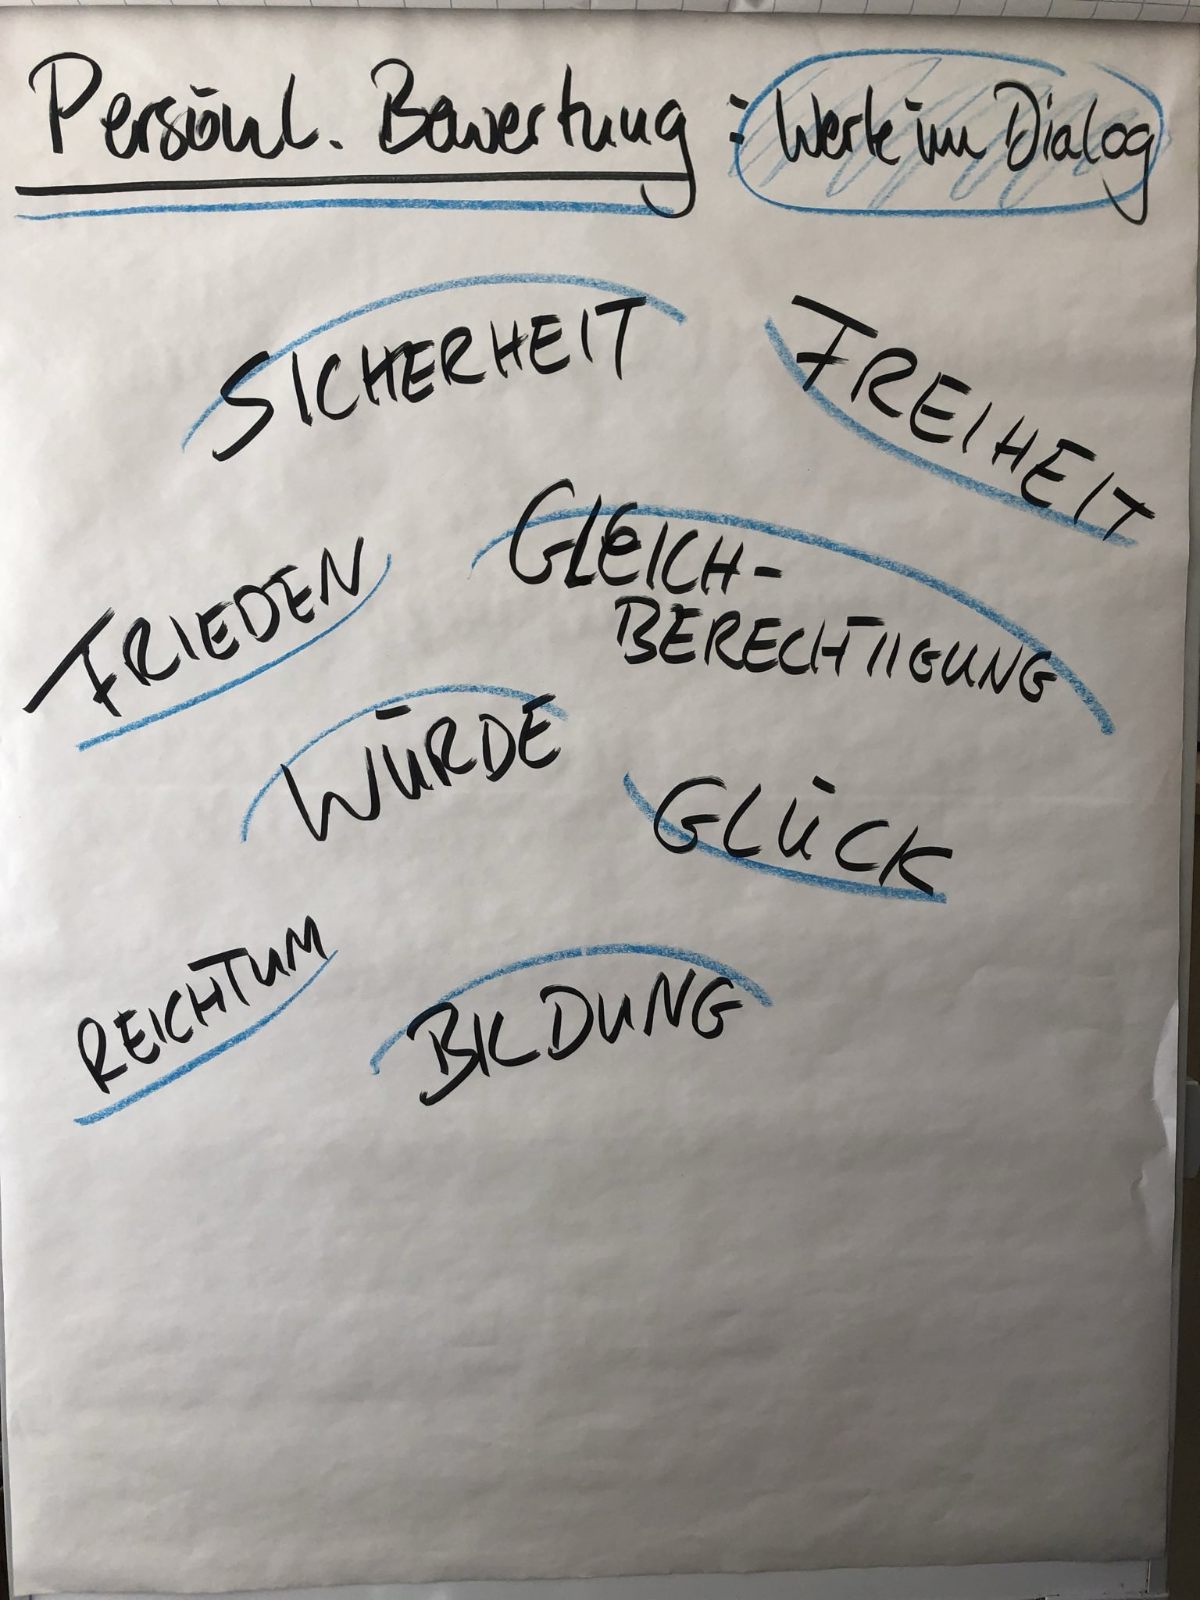 Persönl. Bewertung : Werte im Dialog
SICHERHEIT
FREIHEIT
FRIEDEN
GLEICH-
BERECHTIIGUNG
WÜRDE
GLÜCK
REICHTUM
BILDUNG